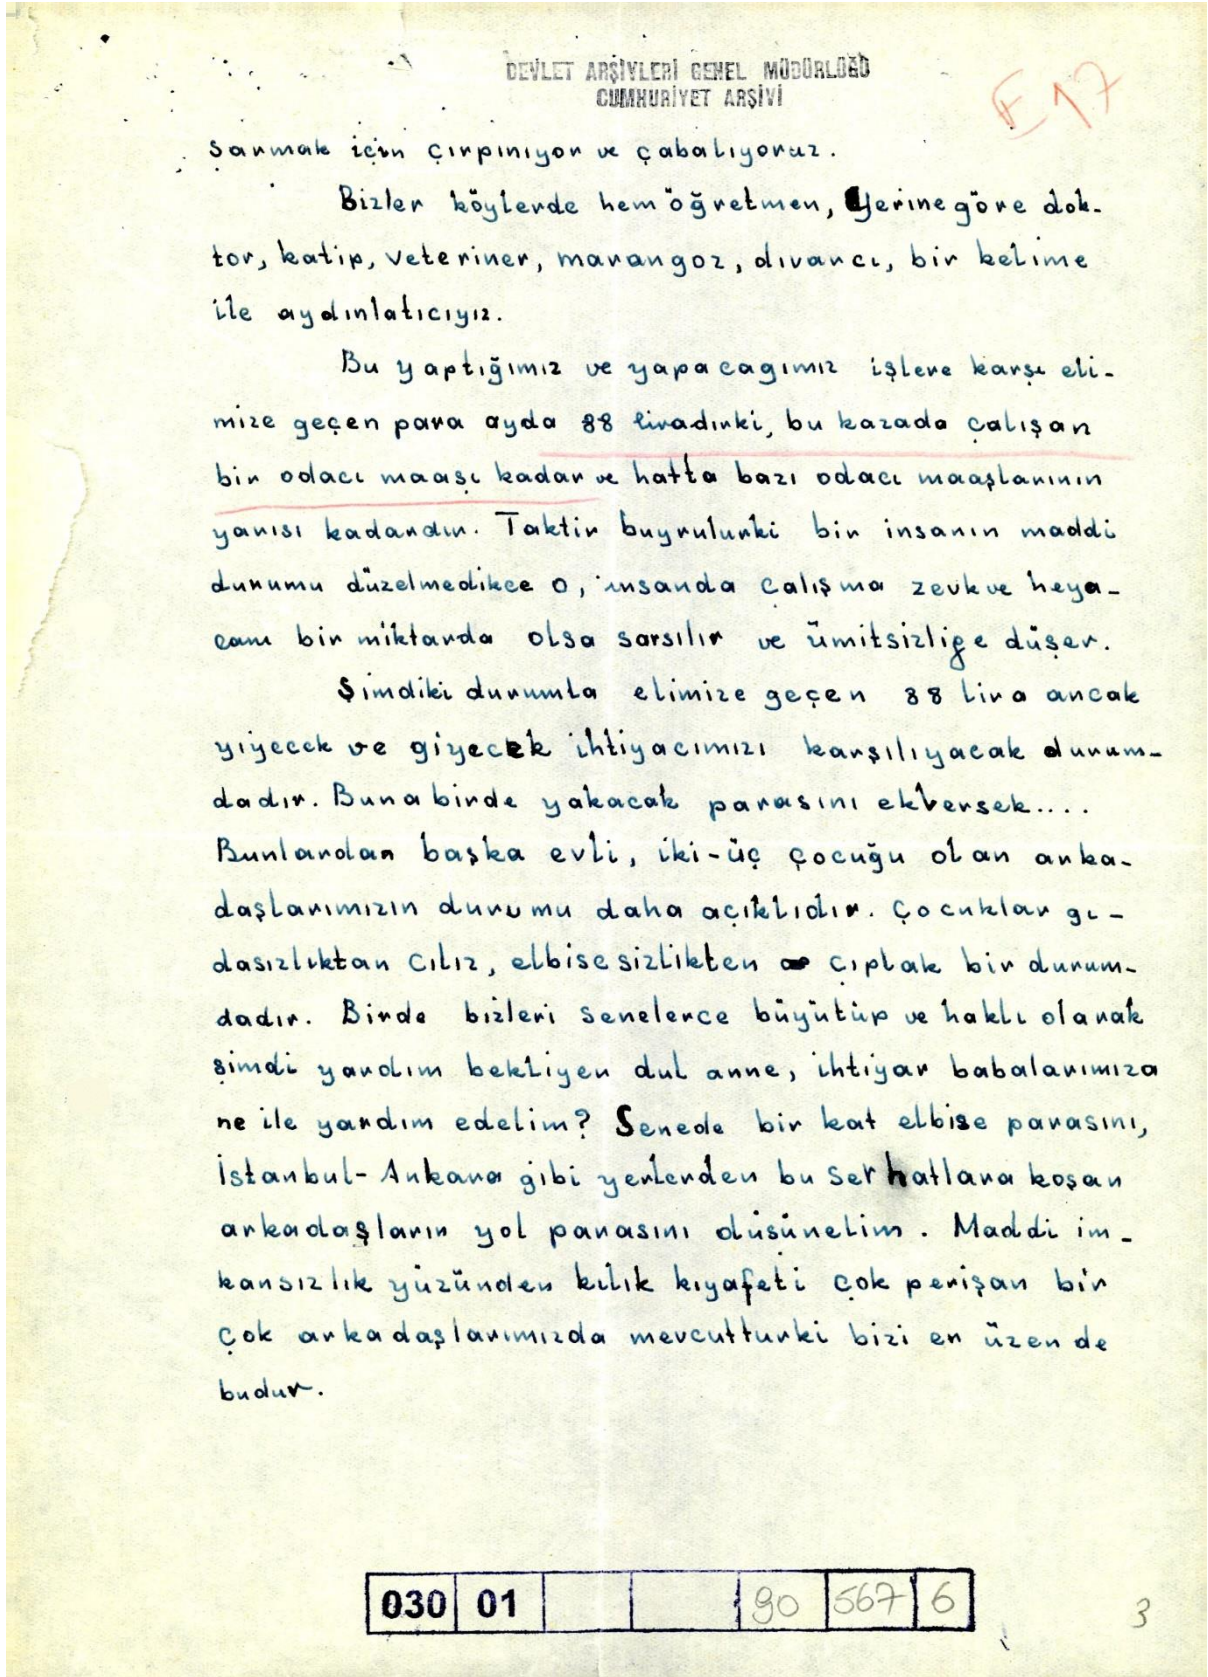 DEVLET ARŞİVLERİ GENEL MÜDÜRLÜĞÜ
CUMHURİYET ARŞİVİ
E 17
şarmak için çırpınıyor ve çabalıyoruz.
Bizler köylerde hem öğretmen, Yerine göre dok-
tor, katip, veteriner, marangoz, dıvarcı, bir kelime
ile aydınlatıcıyız.
Bu yaptığımız ve yapacagımız işlere karşı eli-
mize geçen para ayda 88 liradırki, bu kazada çalışan
bir odacı maaşı kadar ve hatta bazı odacı maaşlarının
yarısı kadardır. Taktir buyrulurki bir insanın maddi
durumu düzelmedikce o, insanda çalışma zevk ve heya-
canı bir miktarda olsa sarsılır ve ümitsizlige düşer.
Şimdiki durumla elimize geçen 88 lira ancak
yiyecek ve giyecek ihtiyacımızı karşılıyacak durum-
dadır. Buna birde yakacak parasını eklersek....
Bunlardan başka evli, iki-üç çocuğu olan arka-
daşlarımızın durumu daha açıklıdır. Çocuklar gı-
dasızlıktan cılız, elbisesizlikten çıplak bir durum-
dadır. Birde bizleri senelerce büyütüp ve haklı olarak
şimdi yardım bekliyen dul anne, ihtiyar babalarımıza
ne ile yardım edelim? Senede bir kat elbise parasını,
İstanbul-Ankara gibi yerlerden bu serhatlara koşan
arkadaşların yol parasını düsünelim. Maddi im-
kansızlık yüzünden kılık kıyafeti çok perişan bir
çok arkadaşlarımızda mevcutturki bizi en üzen de
budur.
030 01 90 567 6
3